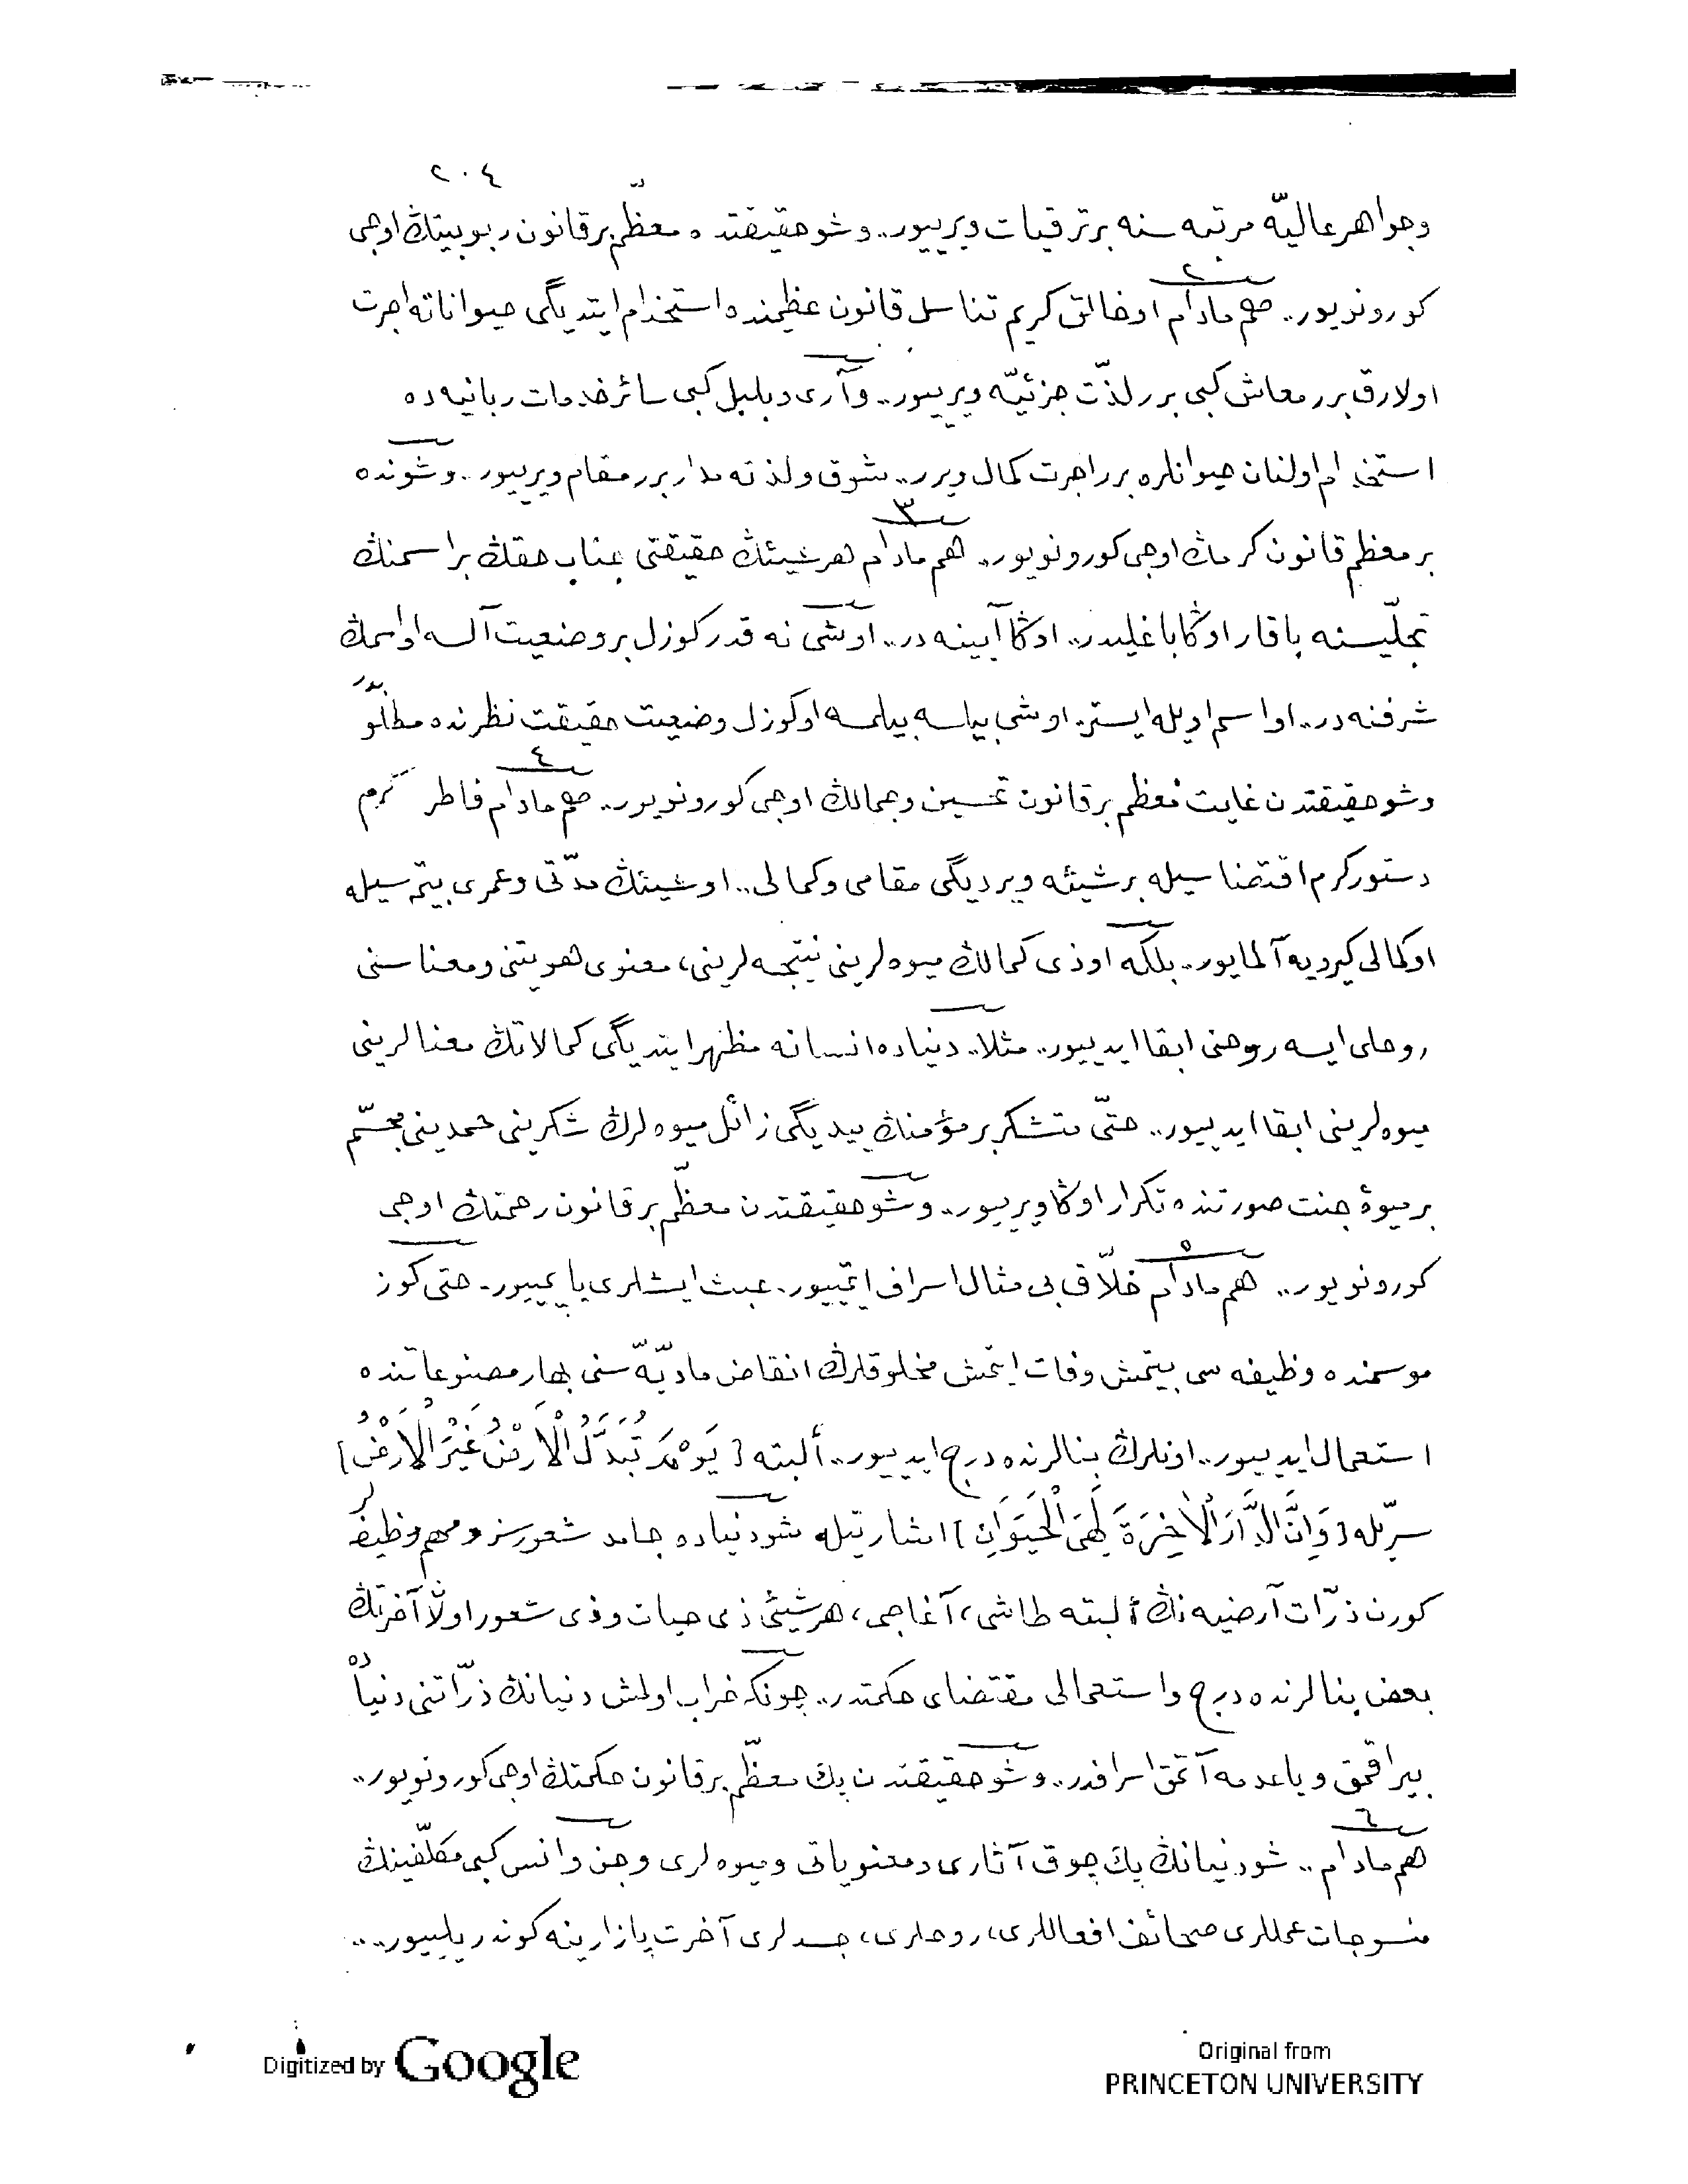 ٢٠٤
وجواهر عاليّه مرتبه سنه بر ترقيات ويرييور.. وشو حقيقتده معظّم بر قانون ربوبيتڭ اوجى
كورونويور.. هم مادام اوخالق كريم تناسل قانون عظيمنده استخدام ايتديگى حيواناته اجرت
اولارق برر معاش كبى برر لذّت جزئيّه ويرييور.. وآرى وبلبل كبى سائر خدمات ربانيه ده
استخدام اولنان حيوانلره برر اجرت كمال ويرر.. شوق ولذته مدار برر مقام ويرييور.. وشونده
بر معظم قانون كرمڭ اوجى كورونويور.. هم مادام هر شيئڭ حقيقتى جناب حقڭ بر اسمنڭ
تجلّيسنه باقار اوڭا باغليدر.. اوڭا آيينه در.. اوشى نه قدر كوزل بر وضعيت آلسه او اسمڭ
شرفنه در.. او اسم اويله ايستر. اوشى بيلسه بيلمسه اوكوزل وضعيت حقيقت نظرنده مطلوبدر
وشو حقيقتدن غايت معظم بر قانون تحسين وجمالڭ اوجى كورونويور.. هم مادام فاطر كريم
دستور كرم اقتضاسيله بر شيئه ويرديگى مقامى وكمالى.. اوشيئڭ مدّتى وعمرى بيتمه سيله
اوكمالى كيرويه آلمايور.. بلكه اوذى كمالڭ ميوه لرينى نتيجه لرينى، معنوى هويتنى ومعناسنى
روحلى ايسه روحنى ابقا ايدييور.. مثلا.. دنياده انسانه مظهر ايتديگى كمالاتڭ معنالرينى
ميوه لرينى ابقا ايدييور.. حتّى متشكر بر مؤمنڭ ييديگى زائل ميوه لرڭ شكرينى حمدينى مجسّم
بر ميوهٔ جنت صورتنده تكرار اوڭا ويرييور.. وشو حقيقتدن معظّم بر قانون رحمتڭ اوجى
كورونويور.. هم مادام خلّاق بى مثال اسراف ايتمييور. عبث ايشلرى ياپمييور. حتى كوز
موسمنده وظيفه سى بيتمش وفات ايتمش مخلوقلرڭ انقاض ماديّه سنى بهار مصنوعاتنده
استعمال ايدييور.. اونلرڭ بنالرنده درج ايدييور.. ألبته [يَوْمَ تُبَدَّلُ الْاَرْضُ غَيْرَ الْاَرْضِ]
سرّيله [وَاِنَّ الدَّارَ الْاٰخِرَةَ لَهِىَ الْحَيَوَانُ] اشارتيله شو دنياده جامد شعورسز ومهم وظيفه لر
كورن ذرّات آرضيه نڭ ألبته طاشى، آغاجى، هر شيئى ذى حيات وذى شعور اولان آخرتڭ
بعض بنالرنده درج واستعمالى مقتضاى حكمتدر.. چونكه خراب اولمش دنيانڭ ذرّاتنى دنياده
بيراقمق ويا عدمه آتمق اسرافدر.. وشو حقيقتدن پك معظّم بر قانون حكمتڭ اوجى كورونويور..
هم مادام.. شو دنيانڭ پك چوق آثارى ومعنوياتى وميوه لرى وجن وانس كبى مكلّفينڭ
منسوجات عمللرى صحائف افعاللرى، روحلرى، جسدلرى آخرت پازارينه كوندريلييور....
Digitized by Google
Original from
PRINCETON UNIVERSITY